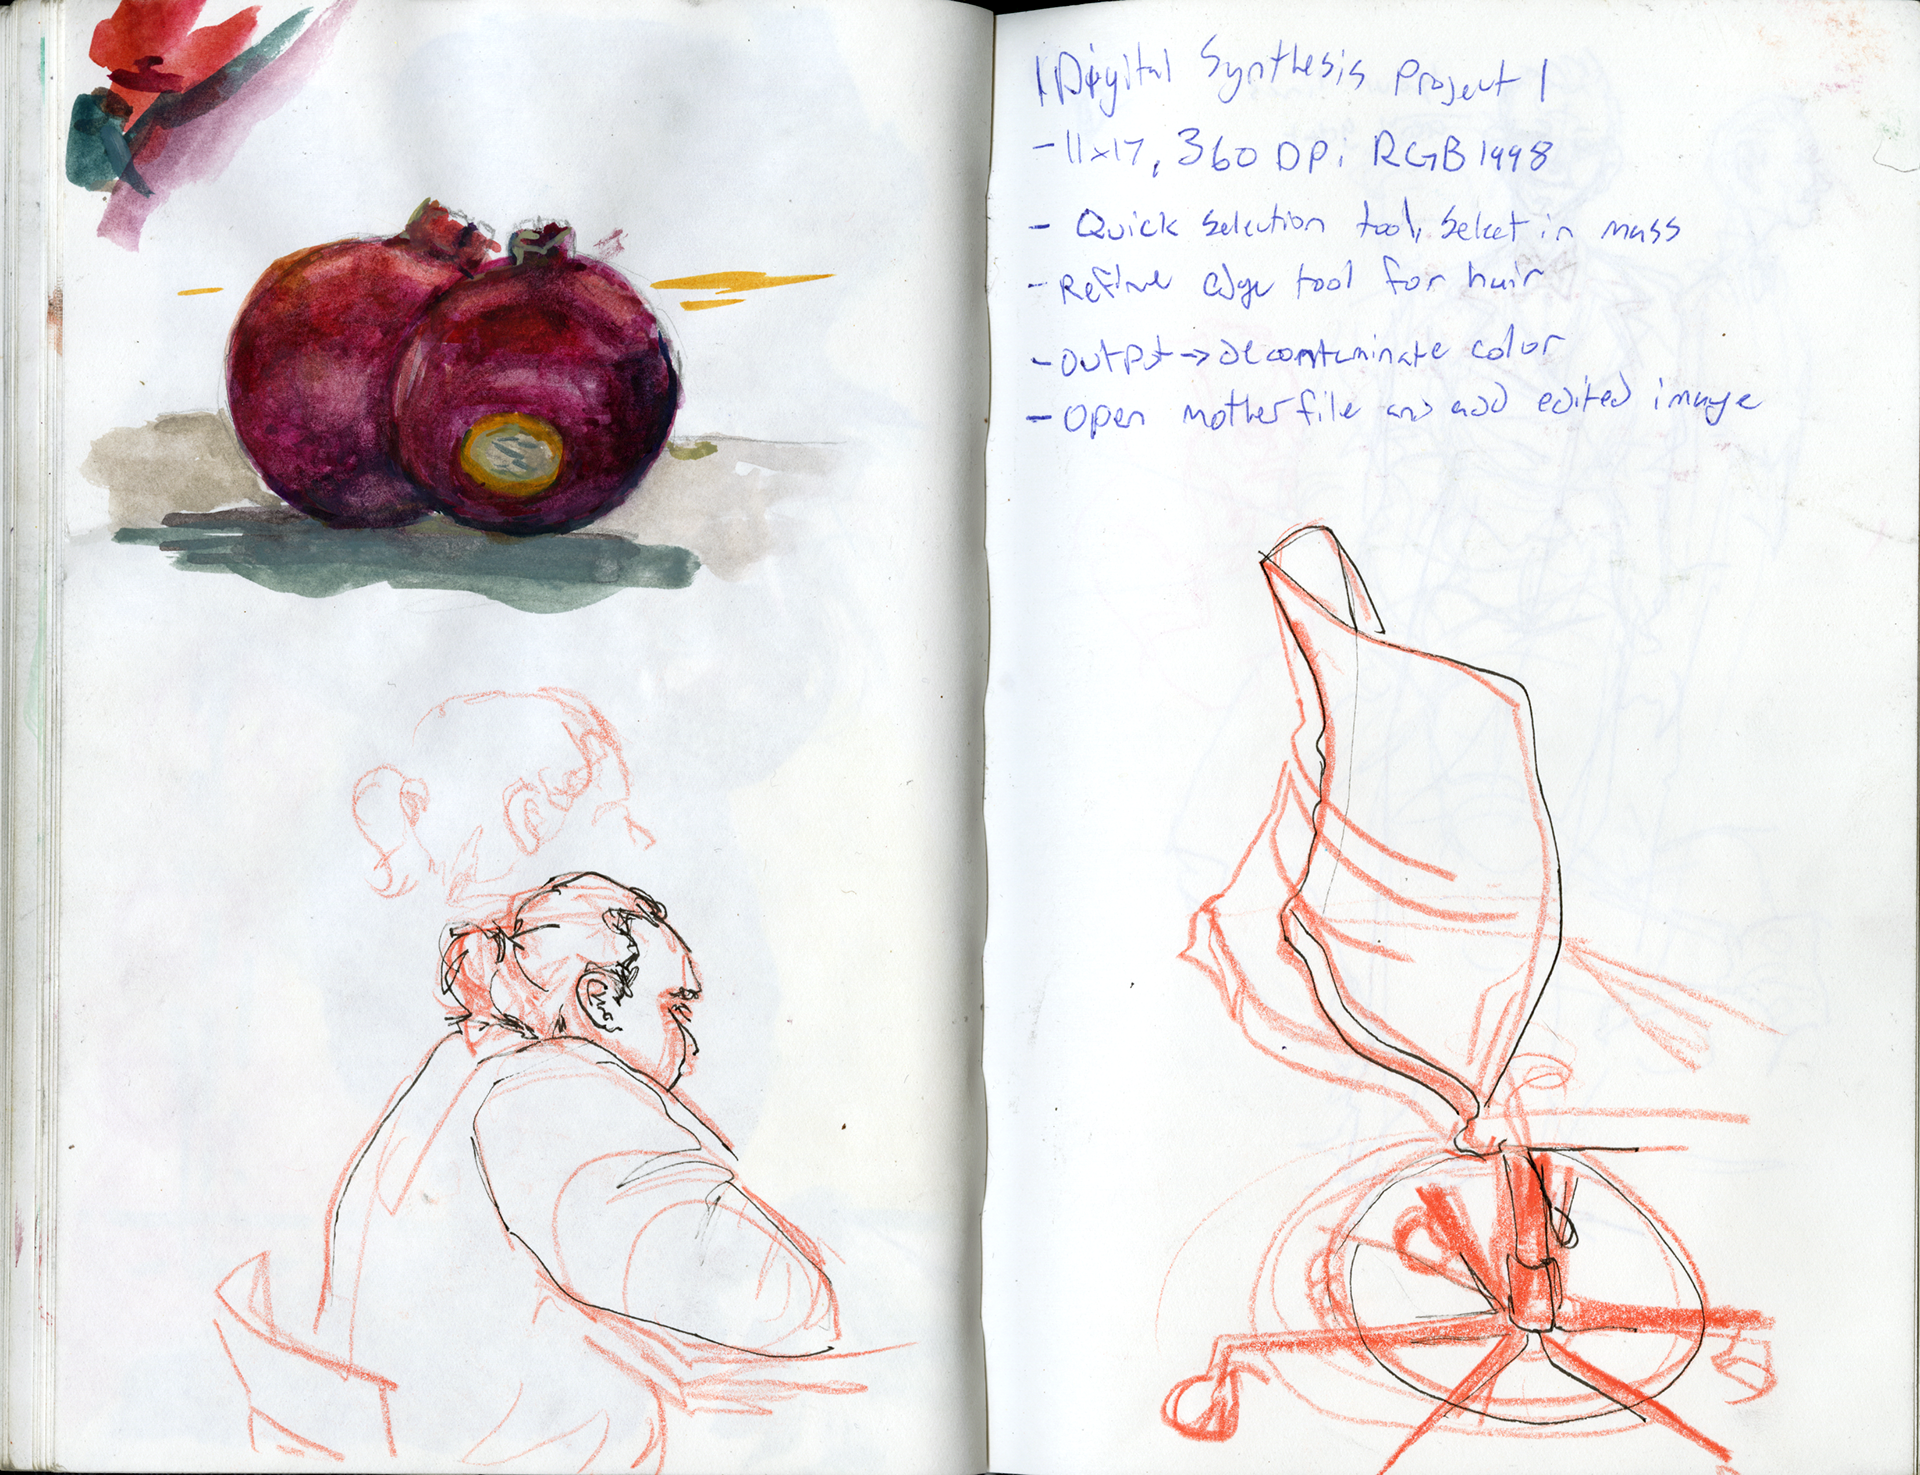 | Digital Synthesis Project |
- 11x17, 360 DPi RGB 1998
- Quick selection tool, select in mass
- Refine edge tool for hair
- output → decontaminate color
- Open mother file and add edited image